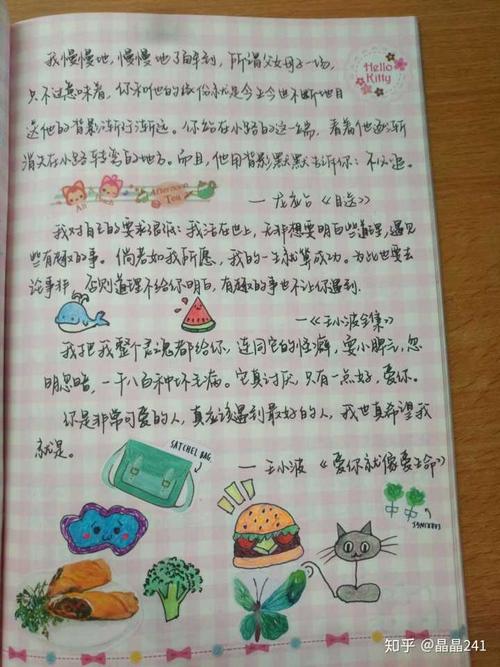 我慢慢地,慢慢地了解到,所谓父女母子一场,
Hello
Kitty
只不过意味着,你和他的缘份就是今生今世不断地目
送他的背影渐行渐远。你站在小路的这一端,看着他逐渐
消失在小路转弯的地方。而且,他用背影默默告诉你:不必追。
Afternoon
Tea
—龙应台《目送》
我对自己的要求很低:我活在世上,无非想要明白些道理,遇见
些有趣的事。倘若如我所愿,我的一生就算成功。为此也要去
论是非,否则道理不给你明白,有趣的事也不让你遇到.
—《王小波全集》
我把我整个灵魂都给你,连同它的怪癖,耍小脾气,忽
明忽暗,一千八百种坏毛病。它真讨厌,只有一点好,爱你。
你是非常可爱的人,真应该遇到最好的人,我也真希望我
就是。
—王小波《爱你就像爱生命》
SATCHEL BAG
知乎 @晶晶241